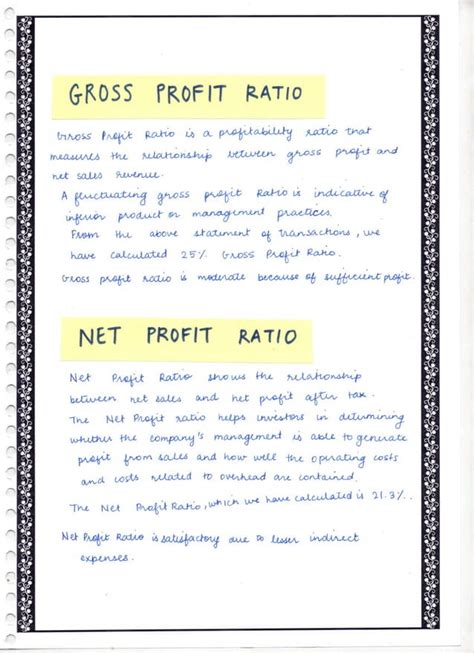 GROSS PROFIT RATIO
Gross Profit Ratio is a profitability ratio that
measures the relationship between gross profit and
net sales revenue.
A fluctuating gross profit Ratio is indicative of
inferior product or management practices.
From the above statement of transactions, we
have calculated 25% Gross Profit Ratio.
Gross profit ratio is moderate because of sufficient profit.
NET PROFIT RATIO
Net Profit Ratio shows the relationship
between net sales and net profit after tax.
The Net Profit ratio helps investors in determining
whether the company's management is able to generate
profit from sales and how well the operating costs
and costs related to overhead are contained.
The Net Profit Ratio, which we have calculated is 21.3%.
Net Profit Ratio is satisfactory due to lesser indirect
expenses.